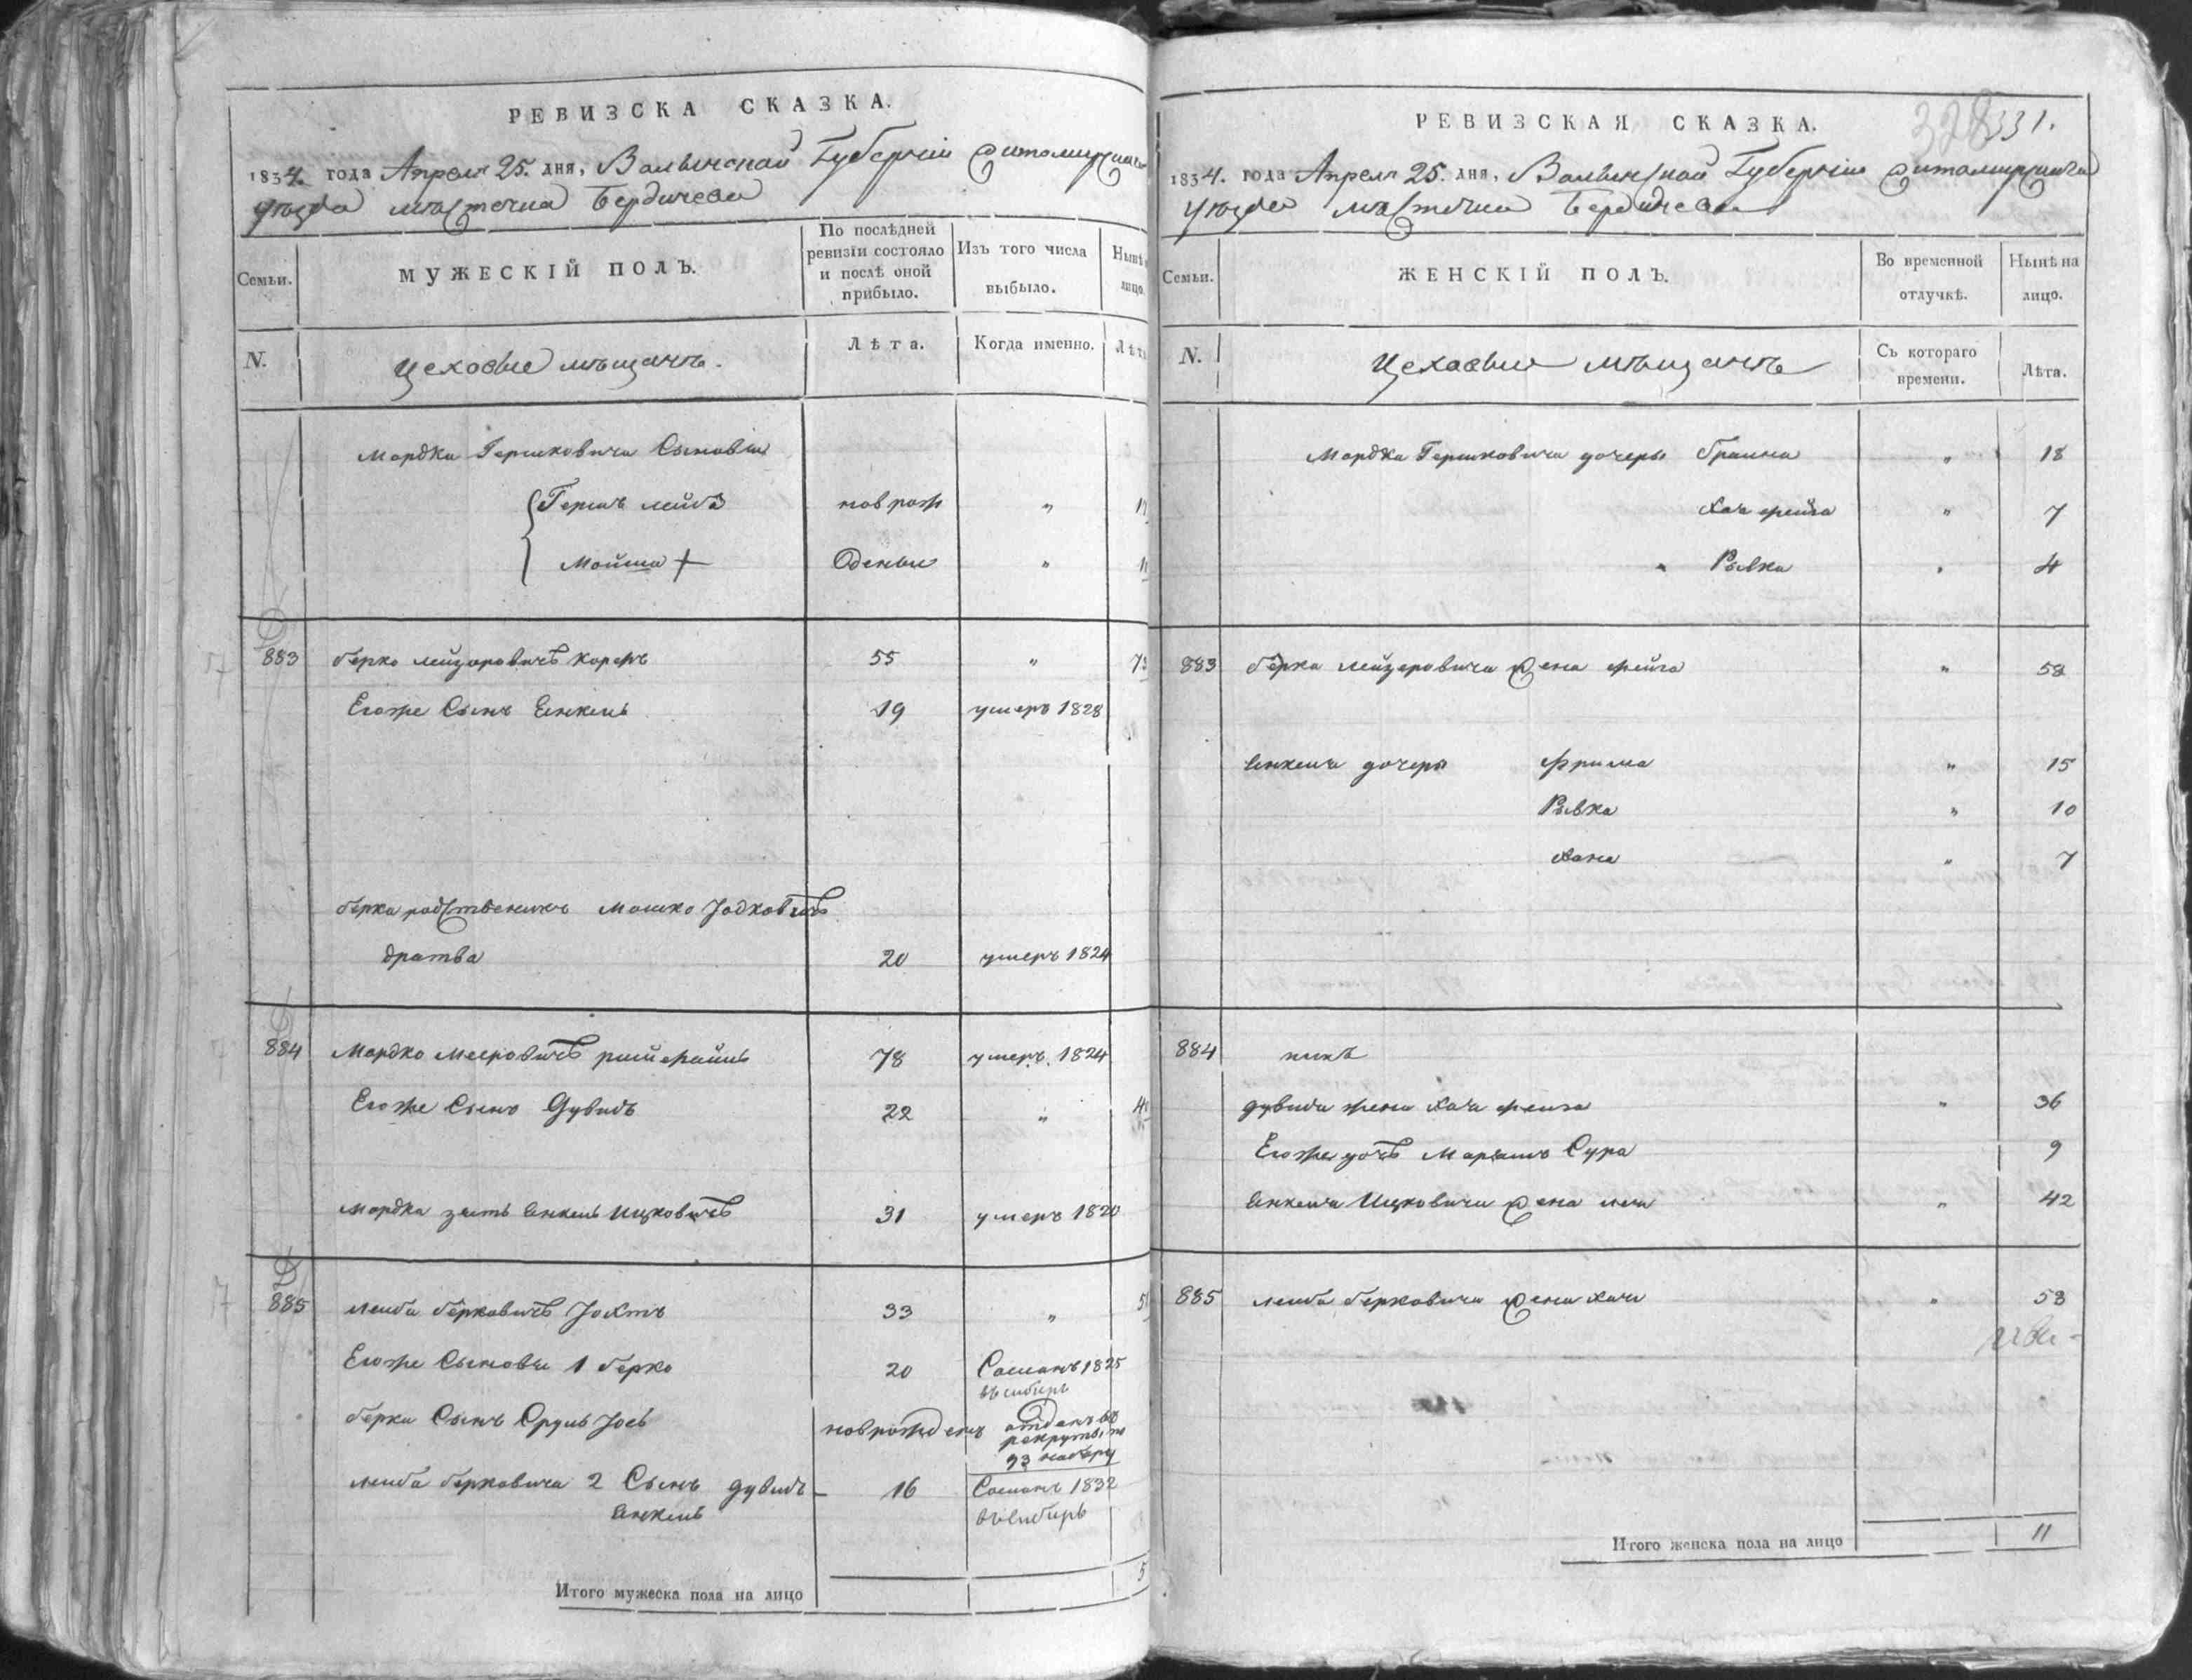 РЕВИЗСКА СКАЗКА.
1834. года Апреля 25. дня, Волынской Губернiи Житомирскаго
уѣзда мѣстечка Бердичева
Семьи.
МУЖЕСКIЙ ПОЛЪ.
По послѣдней
ревизiи состояло
и послѣ оной
прибыло.
Изъ того числа
выбыло.
Нынѣ
лицо.
N.
Цеховые мѣщане.
Лѣта.
Когда именно.
Лѣт
Мордка Гершковича Сыновья
Гершъ лейба новрож "
Мойша + Оденъ "
883 Берко лейзоровичъ Корсъ 55 "
Егоже Сынъ Янкель 19 умеръ 1828
Берка родственникъ Мошко Iодковичъ
дратва 20 умеръ 1824
884 Мордко Мееровичъ 78 умеръ 1824
Егоже Сынъ Дувидъ 22 "
Мордка зять Янкель Ицковичъ 31 умеръ 1820
885 лейба Берковичъ 33 "
Егоже Сыновья 1 Берко 20 Сосланъ 1825
въ сибирь
Берка Сынъ Сруль Iось новрожденъ отданъ въ
рекруты
лейба Берковича 2 Сынъ дувидъ 16 Сосланъ 1832
Янкель въ сибирь
Итого мужеска пола на лицо 5
РЕВИЗСКАЯ СКАЗКА.
328 331.
1834. года Апреля 25. дня, Волынской Губернiи Житомирскаго
уѣзда мѣстечка Бердичева
Семьи.
ЖЕНСКIЙ ПОЛЪ.
Во временной
отлучкѣ.
Нынѣ на
лицо.
N.
Цеховые мѣщане
Съ котораго
времени.
Лѣта.
Мордка Гершковича дочеры Браина " 18
Хая фейга " 7
Рывка " 4
883 Берка лейзеровича Жена фейга " 58
Янкеля дочеры Фрима " 15
Рывка " 10
Хана " 7
884 никъ
дувида жена Хая фейга " 36
Егоже дочь Марьямъ Сура 9
Янкеля Ицковича Жена лея " 42
885 лейба Берковича Жена Хая " 53
Итого женска пола на лицо 11